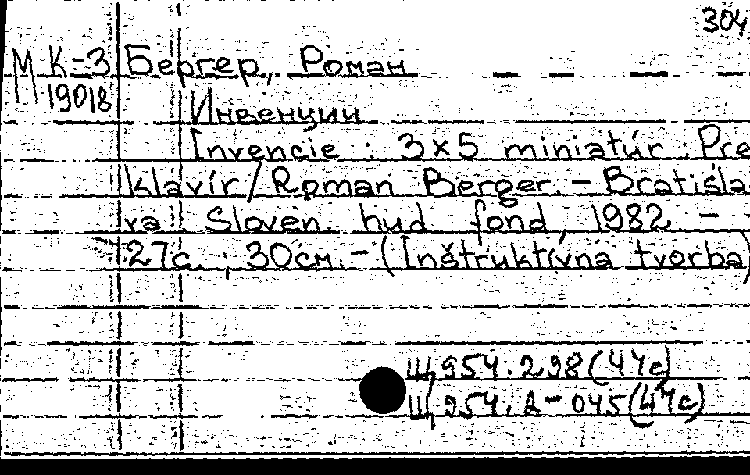 304
М К-3 Бергер, Роман
19018
Инвенции
Invencie : 3x5 miniatúr. Pre
klavír / Roman Berger. – Bratisla
va : Sloven. hud. fond, 1982. –
27с. ; 30см. – (Inštruktívna tvorba)
Щ954.298(4Че)
Щ954.2-045(4Че)